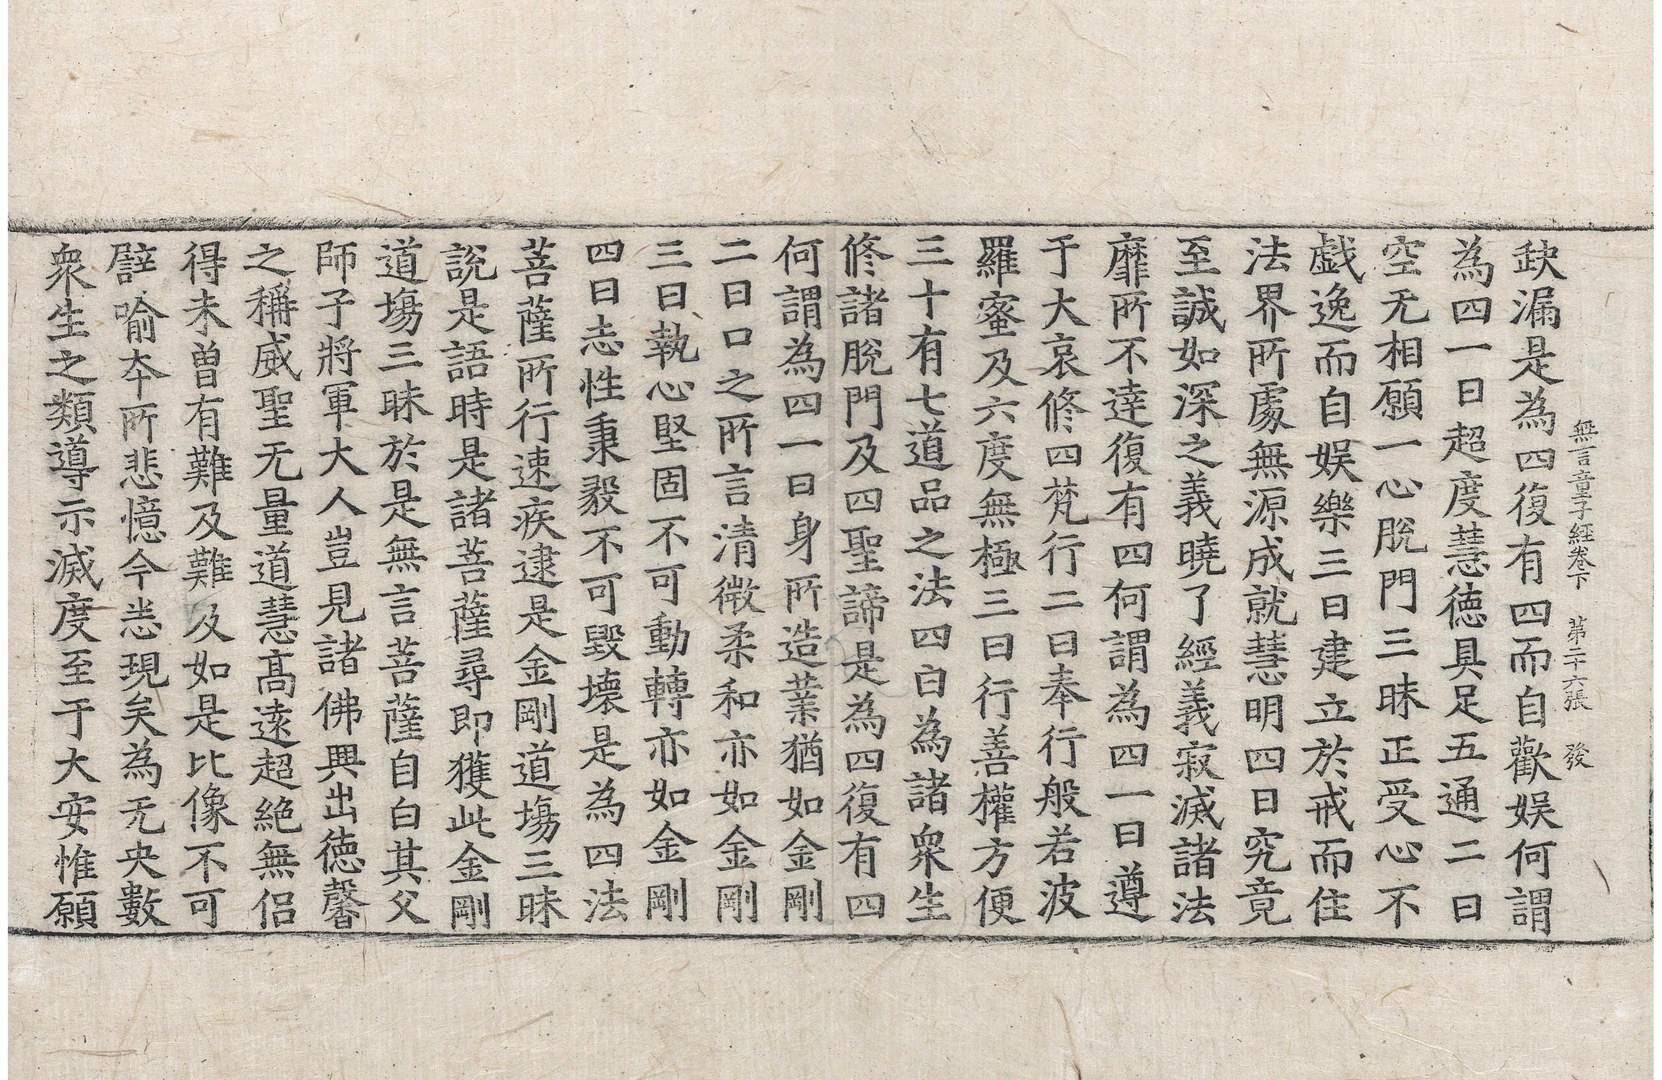 無言童子經卷下 第二十六張 發
缺漏是為四復有四而自歡娛何謂
為四一曰超度慧德具足五通二曰
空无相願一心脫門三昧正受心不
戲逸而自娛樂三曰建立於戒而住
法界所處無源成就慧明四曰究竟
至誠如深之義曉了經義寂滅諸法
靡所不達復有四何謂為四一曰遵
于大哀修四梵行二曰奉行般若波
羅蜜及六度無極三曰行善權方便
三十有七道品之法四曰為諸衆生
修諸脫門及四聖諦是為四復有四
何謂為四一曰身所造業猶如金剛
二曰口之所言清微柔和亦如金剛
三曰執心堅固不可動轉亦如金剛
四曰志性秉毅不可毀壞是為四法
菩薩所行速疾逮是金剛道場三昧
說是語時是諸菩薩尋即獲此金剛
道場三昧於是無言菩薩自白其父
師子將軍大人豈見諸佛興出德馨
之稱威聖无量道慧高遠超絕無侶
得未曾有難及難及如是比像不可
譬喻夲所悲憶今悉現矣為无央數
衆生之類導示滅度至于大安惟願